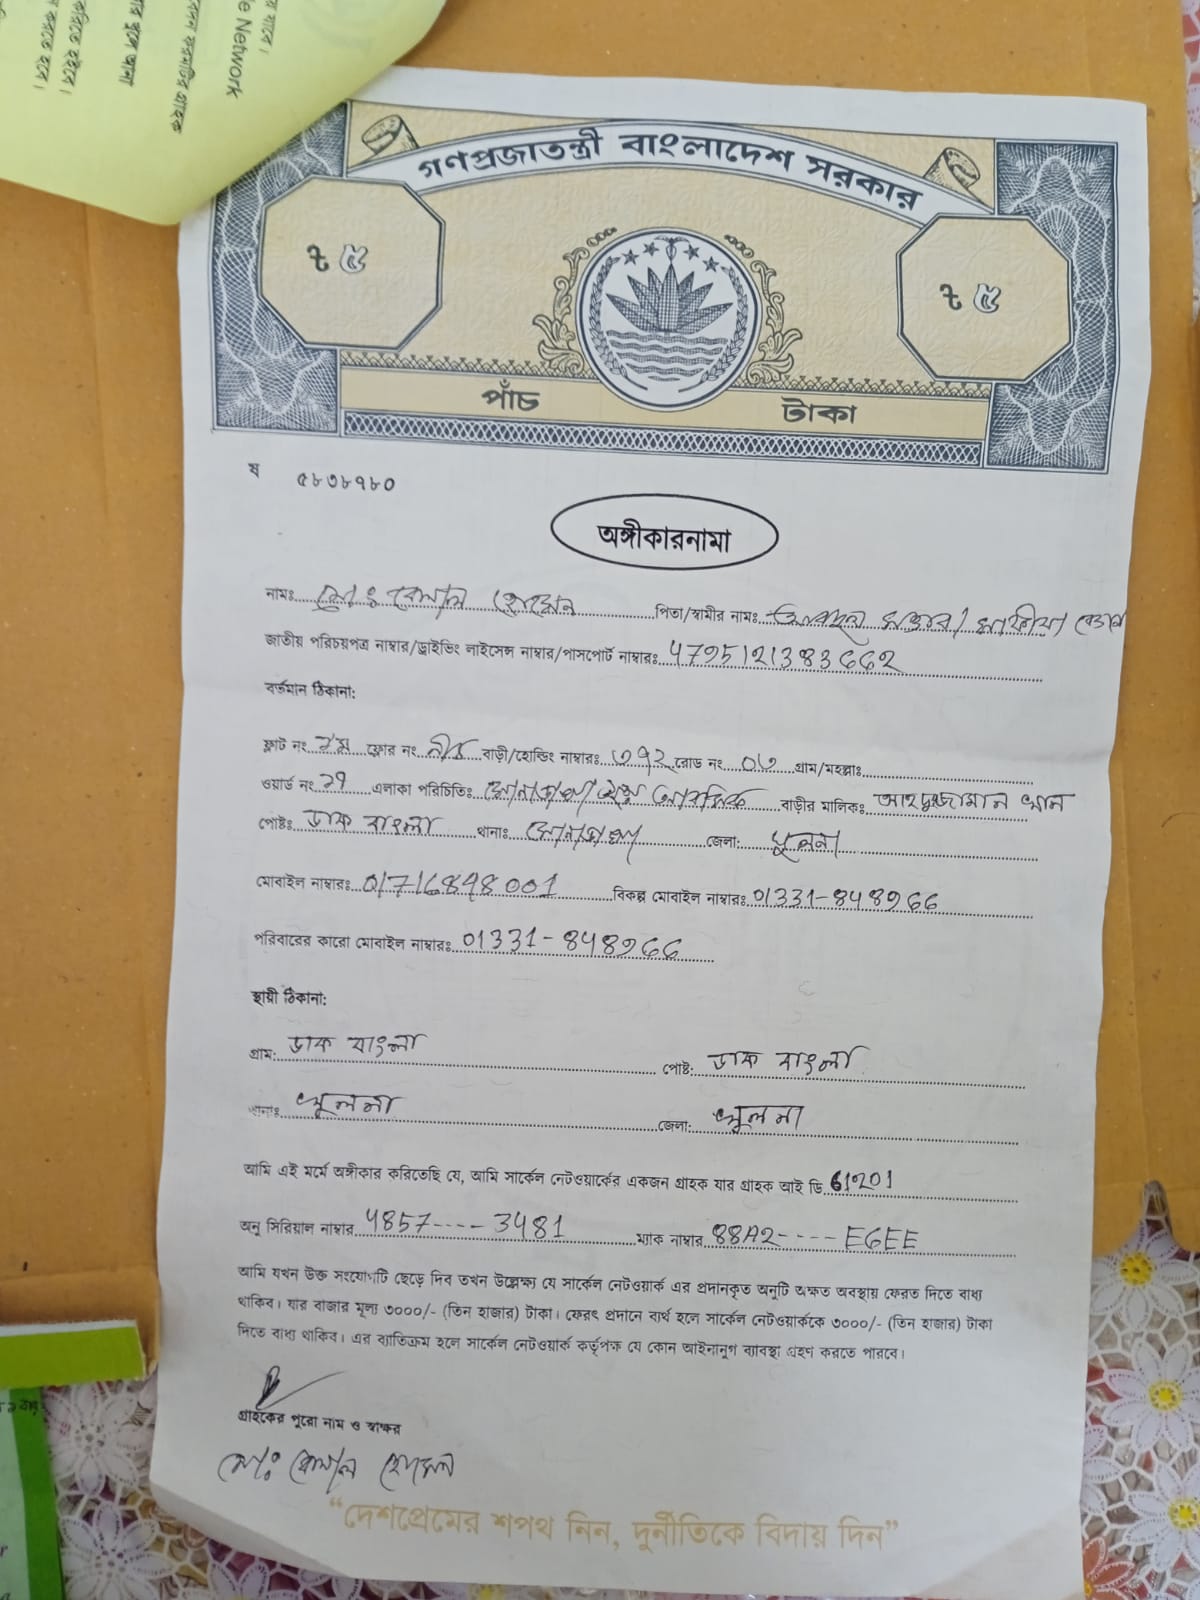 যাবে।
e Network
গণপ্রজাতন্ত্রী বাংলাদেশ সরকার
৳ ৫ ৳ ৫
পাঁচ টাকা
ষ ৫৮৩৮৭৮০
অঙ্গীকারনামা
নামঃ মোঃ বেলাল হোসেন পিতা/স্বামীর নামঃ
জাতীয় পরিচয়পত্র নাম্বার/ড্রাইভিং লাইসেন্স নাম্বার/পাসপোর্ট নাম্বারঃ 4795121383662
বর্তমান ঠিকানা:
ফ্লাট নং ফ্লোর নং নীচ বাড়ী/হোল্ডিং নাম্বারঃ ৩৭২ রোড নং ০৩ গ্রাম/মহল্লাঃ
ওয়ার্ড নং এলাকা পরিচিতিঃ বাড়ীর মালিকঃ আহদুজ্জামান খান
পোষ্টঃ ডাক বাংলা থানাঃ সোনাডাঙ্গা জেলা: খুলনা
মোবাইল নাম্বারঃ 01716898001 বিকল্প মোবাইল নাম্বারঃ 01331-848966
পরিবারের কারো মোবাইল নাম্বারঃ 01331-848966
স্থায়ী ঠিকানা:
গ্রাম: ডাক বাংলা পোষ্ট: ডাক বাংলা
থানাঃ খুলনা জেলা: খুলনা
আমি এই মর্মে অঙ্গীকার করিতেছি যে, আমি সার্কেল নেটওয়ার্কের একজন গ্রাহক যার গ্রাহক আই ডি 61201
অনু সিরিয়াল নাম্বার 4857---- 3481 ম্যাক নাম্বার 88A2---- E6EE
আমি যখন উক্ত সংযোগটি ছেড়ে দিব তখন উল্লেক্ষ্য যে সার্কেল নেটওয়ার্ক এর প্রদানকৃত অনুটি অক্ষত অবস্থায় ফেরত দিতে বাধ্য
থাকিব। যার বাজার মূল্য ৩০০০/- (তিন হাজার) টাকা। ফেরৎ প্রদানে ব্যর্থ হলে সার্কেল নেটওয়ার্ককে ৩০০০/- (তিন হাজার) টাকা
দিতে বাধ্য থাকিব। এর ব্যাতিক্রম হলে সার্কেল নেটওয়ার্ক কর্তৃপক্ষ যে কোন আইনানুগ ব্যাবস্থা গ্রহণ করতে পারবে।
গ্রাহকের পুরো নাম ও স্বাক্ষর
মোঃ বেলাল হোসেন
“দেশপ্রেমের শপথ নিন, দুর্নীতিকে বিদায় দিন”